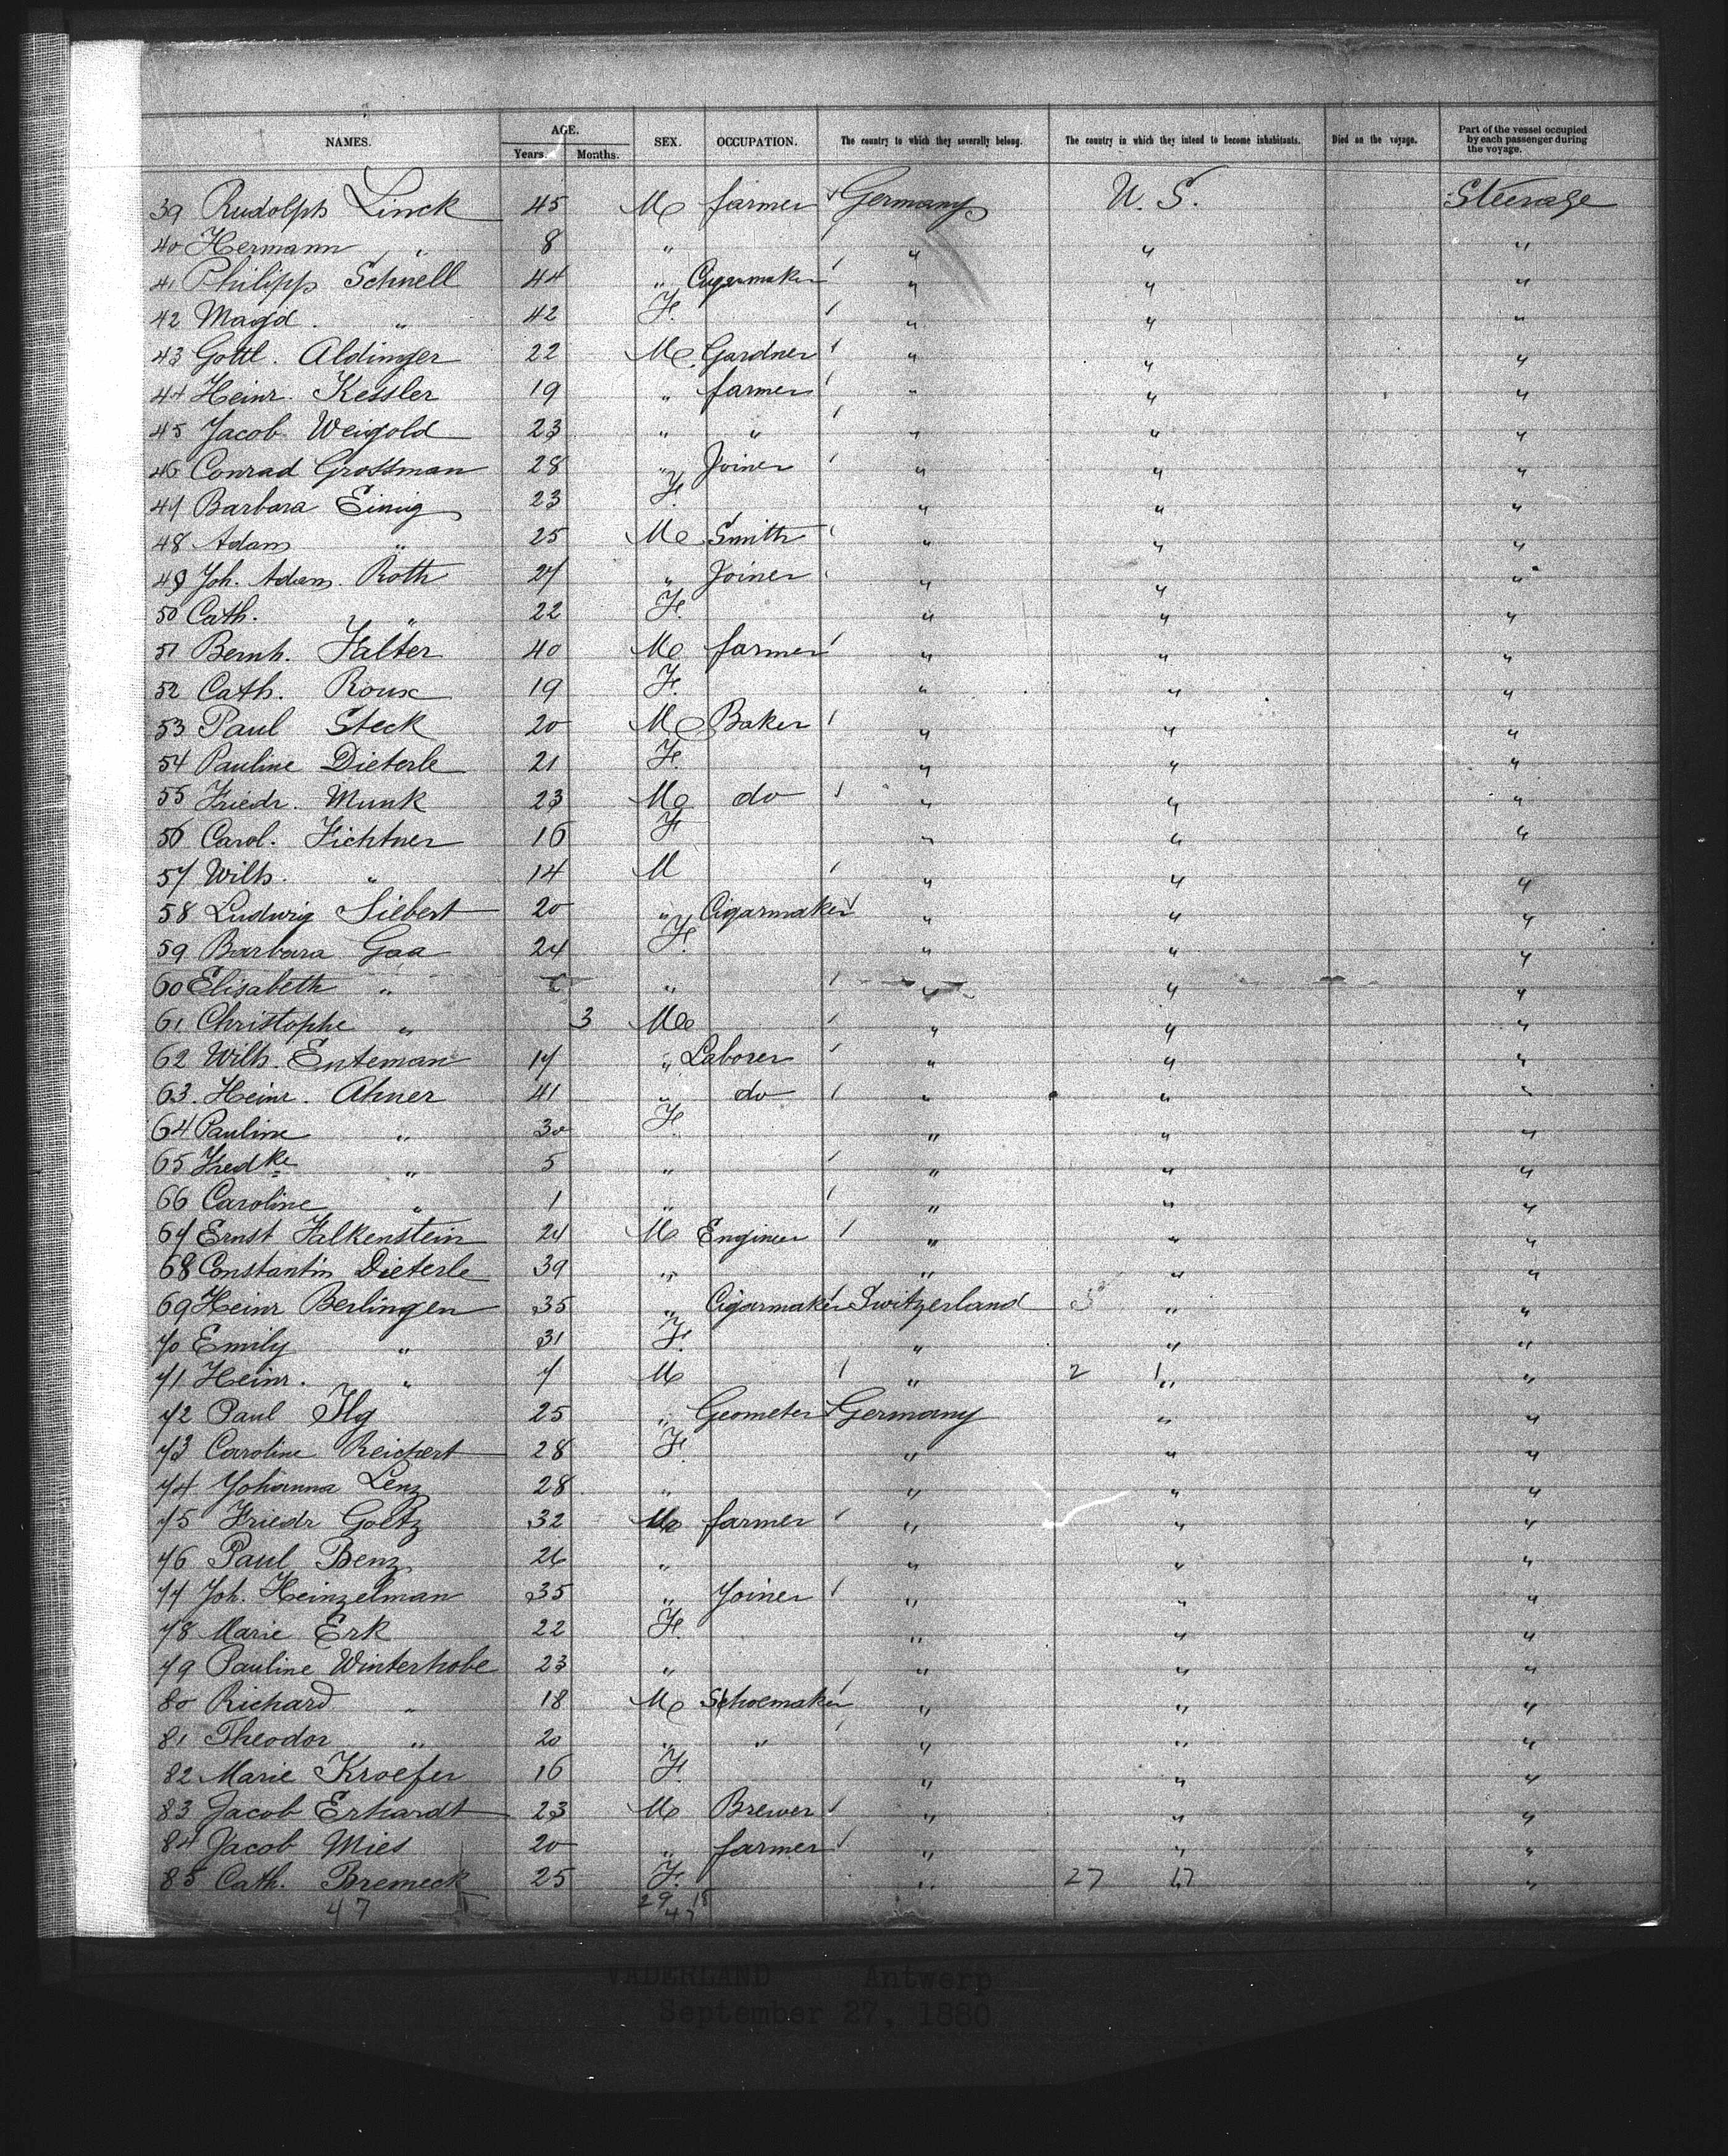 NAMES. AGE. SEX. OCCUPATION. The country to which they severally belong. The country in which they intend to become inhabitants. Died on the voyage. Part of the vessel occupied by each passenger during the voyage.
Years. Months.
39 Rudolph Linck 45 M farmer Germany U. S. Steerage
40 Hermann " 8 " " " "
41 Philipp Schnell 44 " Cigarmaker " " "
42 Magd. " 42 F. " " "
43 Gottl. Aldinger 22 M Gardner " " "
44 Heinr. Kessler 19 " farmer " " "
45 Jacob Weigold 23 " " " " "
46 Conrad Grossman 28 " Joiner " " "
47 Barbara Einig 23 F. " " "
48 Adam " 25 M Smith " " "
49 Joh. Adam Roth 27 " Joiner " " "
50 Cath. " 22 F. " " "
51 Bernh. Falter 40 M farmer " " "
52 Cath. Roux 19 F. " " "
53 Paul Steck 20 M Baker " " "
54 Pauline Dieterle 21 F. " " "
55 Friedr. Munk 23 M do " " "
56 Carol. Fichtner 16 F " " "
57 Wilh. " 14 M " " "
58 Ludwig Siebert 20 " Cigarmaker " " "
59 Barbara Gaa 24 F. " " "
60 Elisabeth " " " " "
61 Christophe " 3 M " " "
62 Wilh. Enteman 17 " Laborer " " "
63. Heinr. Ahner 41 " do " " "
64 Pauline " 30 F. " " "
65 Fredke " 5 " " " "
66 Caroline " 1 " " " "
67 Ernst Falkenstein 24 M Engineer " " "
68 Constantin Dieterle 39 " " " "
69 Heinr Berlingen 35 " Cigarmaker Switzerland " "
70 Emily " 31 F. " " "
71 Heinr. " 7 M " 2 1 " "
72 Paul Ilg 25 " Geometer Germany " "
73 Caroline Reichert 28 F. " " "
74 Johanna Lenz 28 " " " "
75 Friedr Goetz 32 M farmer " " "
76 Paul Benz 26 " " " "
77 Joh. Heinzelman 35 " Joiner " " "
78 Marie Erk 22 F. " " "
79 Pauline Winterhobe 23 " " " "
80 Richard " 18 M Schoemaker " " "
81 Theodor " 20 " " " " "
82 Marie Kroefer 16 F. " " "
83 Jacob Erhardt 23 M Brewer " " "
84 Jacob Mies 20 " farmer " " "
85 Cath. Bremeck 25 F. " 27 17 " "
47 29 18
47
VADERLAND Antwerp
September 27, 1880